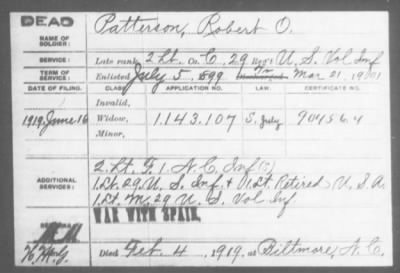 DEAD
NAME OF SOLDIER: Patterson, Robert O.
SERVICE: Late rank, 2 Lt. Co. C, 29 Reg't U. S. Vol Inf
TERM OF SERVICE: Enlisted July 5, 1899 Mar 21, 1901
DATE OF FILING. CLASS APPLICATION NO. LAW. CERTIFICATE NO.
Invalid,
1919, June 16 Widow, 1.143.107 S. July 904564
Minor,
ADDITIONAL SERVICES: 2. Lt. F. 1 N. C. Inf (S)
1. Lt. 29. U. S. Inf. & V. 1. Lt. Retired, U. S. A.
1. Lt. M. 29 U. S. Vol Inf
WAR WITH SPAIN.
Died Feb. 4, 1919, at Biltmore, N. C.